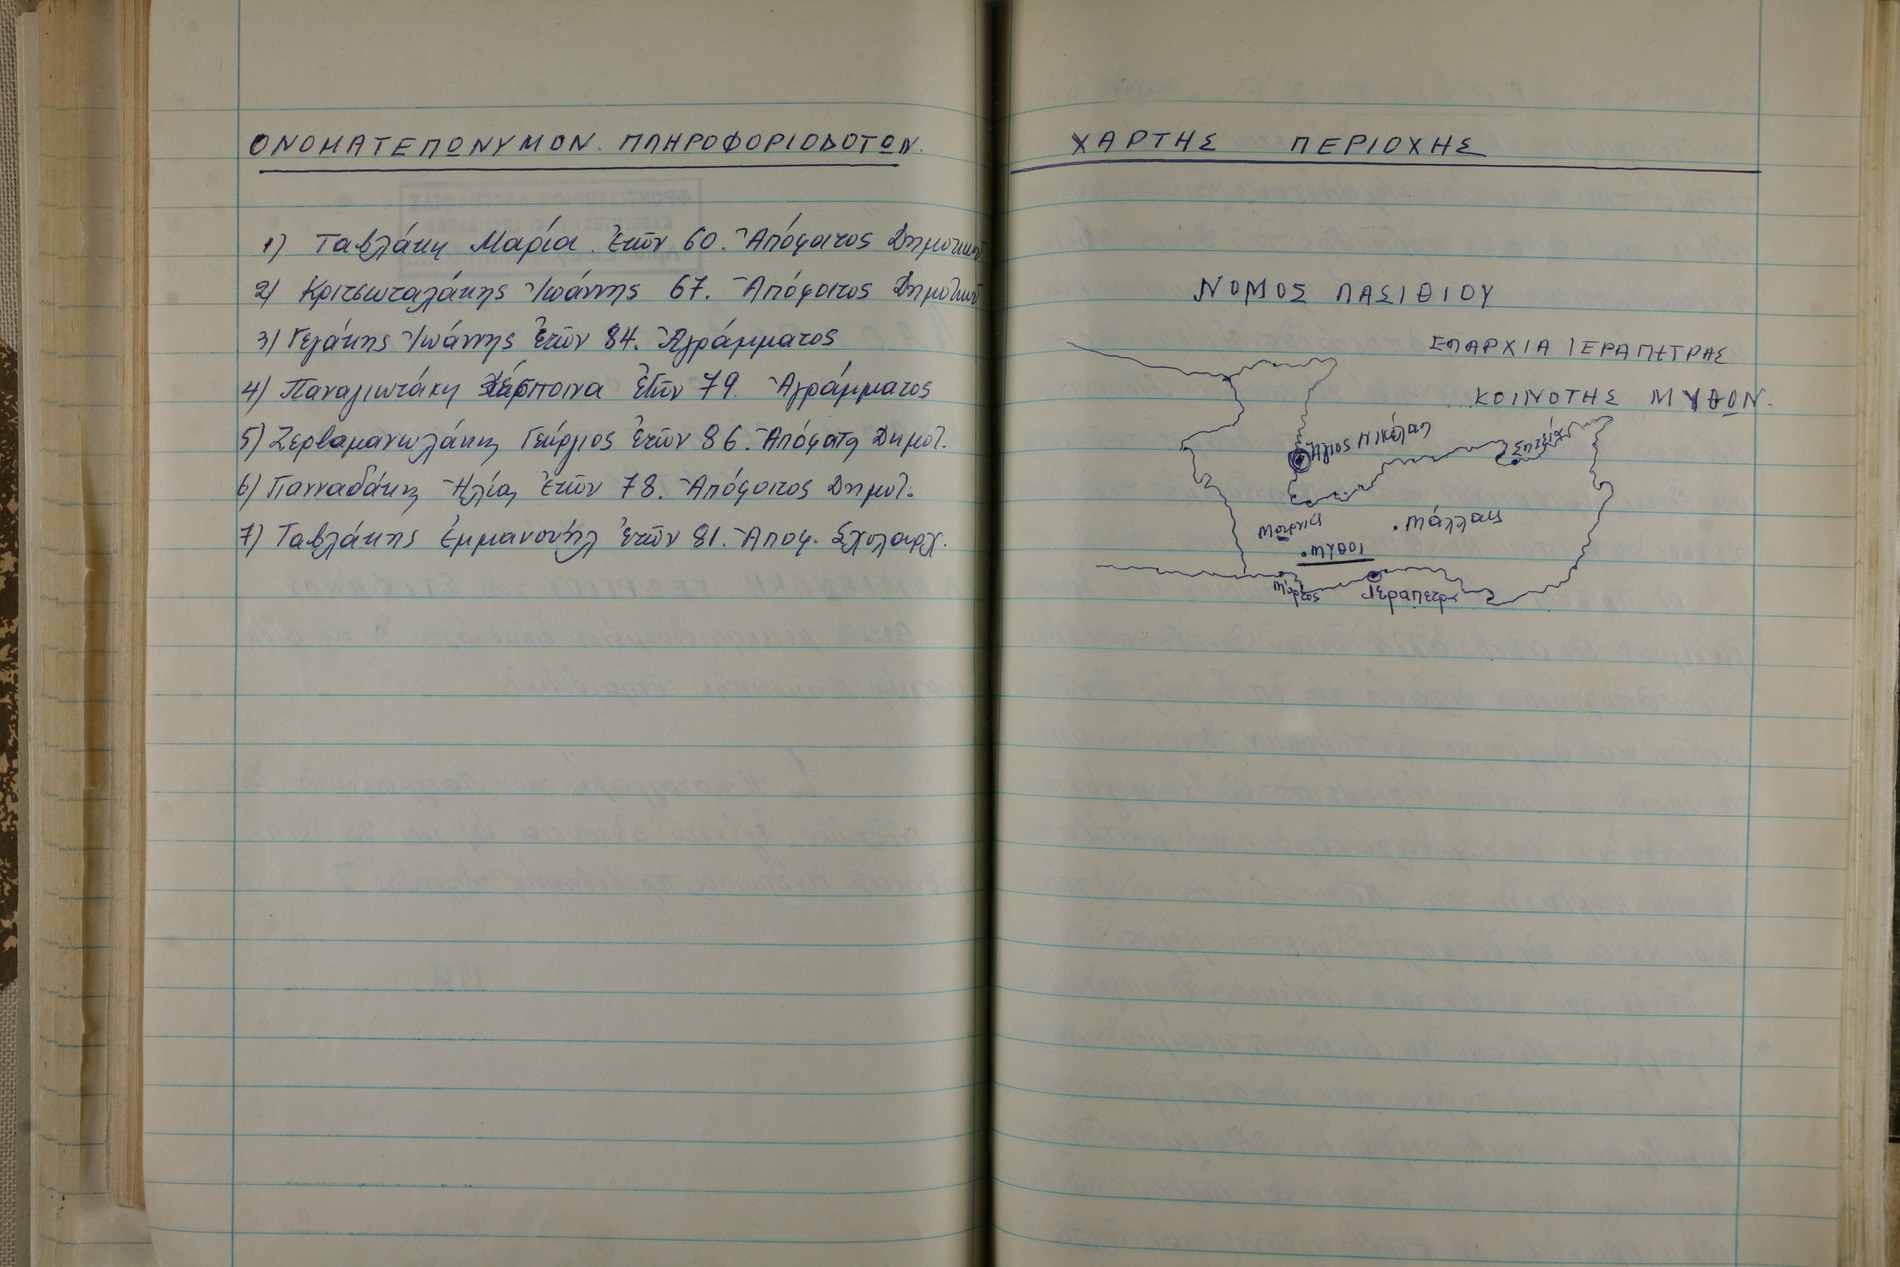 ΟΝΟΜΑΤΕΠΩΝΥΜΟΝ. ΠΛΗΡΟΦΟΡΙΟΔΟΤΩΝ.
1) Ταβλάκη Μαρία. ἐτῶν 60. Ἀπόφοιτος Δημοτικοῦ
2) Κριτσωταλάκης Ἰωάννης 67. Ἀπόφοιτος Δημοτικοῦ
3) Γελάκης Ἰωάννης ἐτῶν 84. Ἀγράμματος
4) Παναγιωτάκη Δέσποινα ἐτῶν 79 Ἀγράμματος
5) Ζερβαμανωλάκης Γεώργιος ἐτῶν 86. Ἀπόφοιτος Δημοτ.
6) Γανναδάκης Ἠλίας ἐτῶν 78. Ἀπόφοιτος Δημοτ.
7) Ταβλάκης Ἐμμανουήλ ἐτῶν 81. Ἀποφ. Σχολαρχ.
ΧΑΡΤΗΣ ΠΕΡΙΟΧΗΣ
ΝΟΜΟΣ ΛΑΣΙΘΙΟΥ
ΕΠΑΡΧΙΑ ΙΕΡΑΠΕΤΡΑΣ
ΚΟΙΝΟΤΗΣ ΜΥΘΩΝ.
Ἅγιος Νικόλαος
Σητεία
Μουρνιές
Μάλλαις
Μύθοι
Μύρτος
Ἱεράπετρα